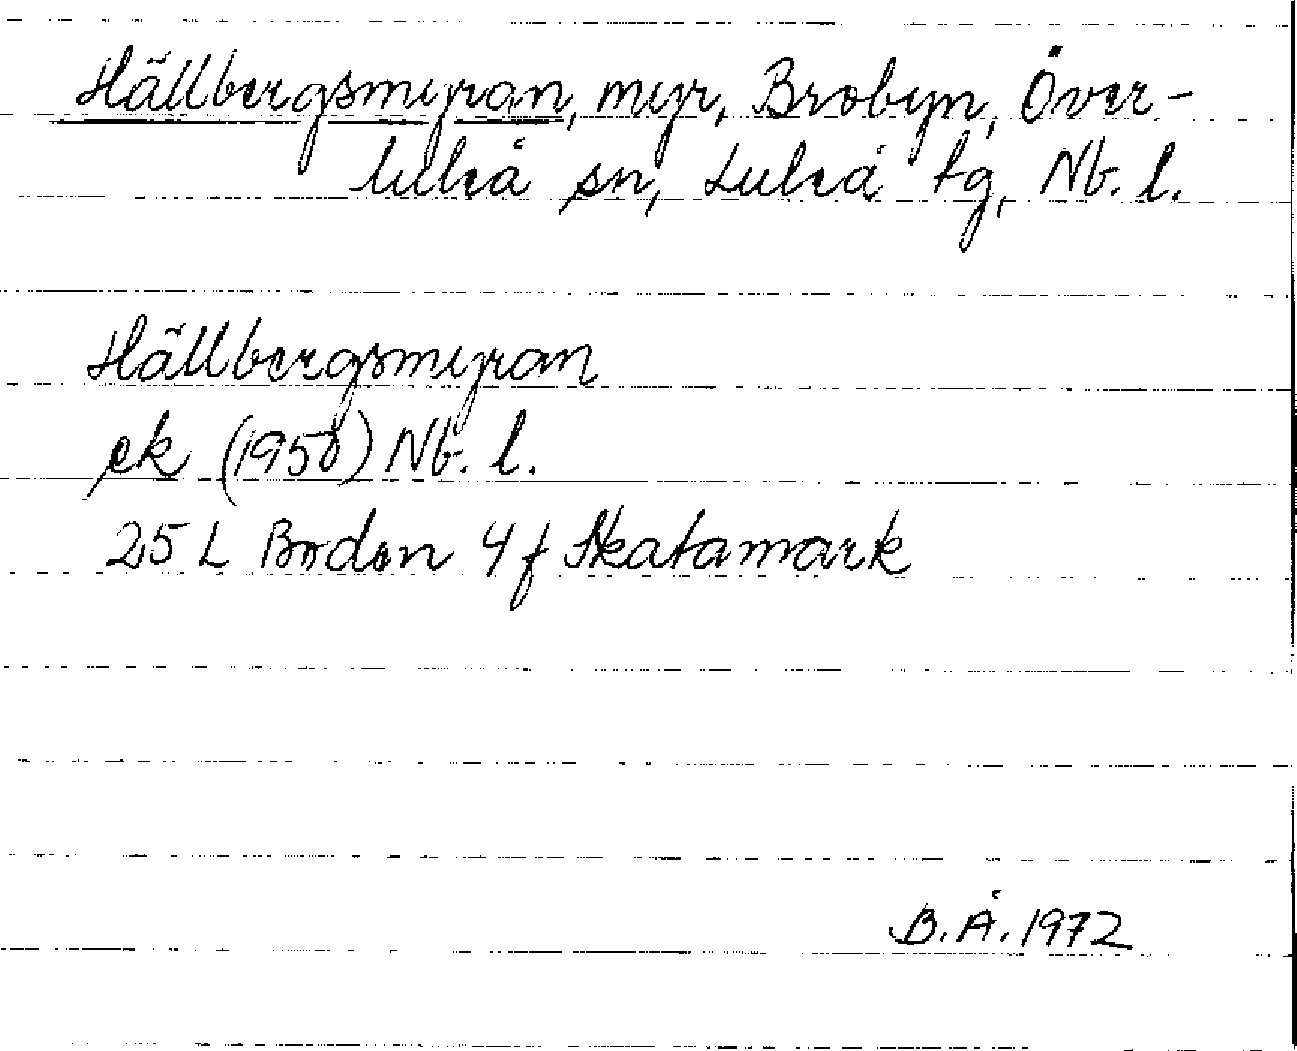 Hällbergsmyran, myr, Brobyn, Över-
luleå sn, Luleå tg, Nb. l.
Hällbergsmyran
ek (1950) Nb. l.
25 L Boden 4 f Skatamark
B.Å. 1972